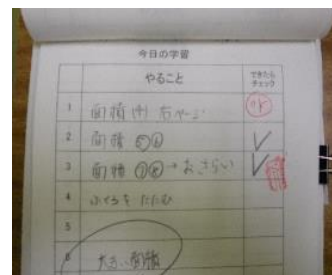 今日の学習
やること
できたら
チェック
1 面積(4) 右ページ
2 面積 ⑤⑥
3 面積 ⑦⑧→おさらい
4 ふくろをたたむ
5
6 大きい面積